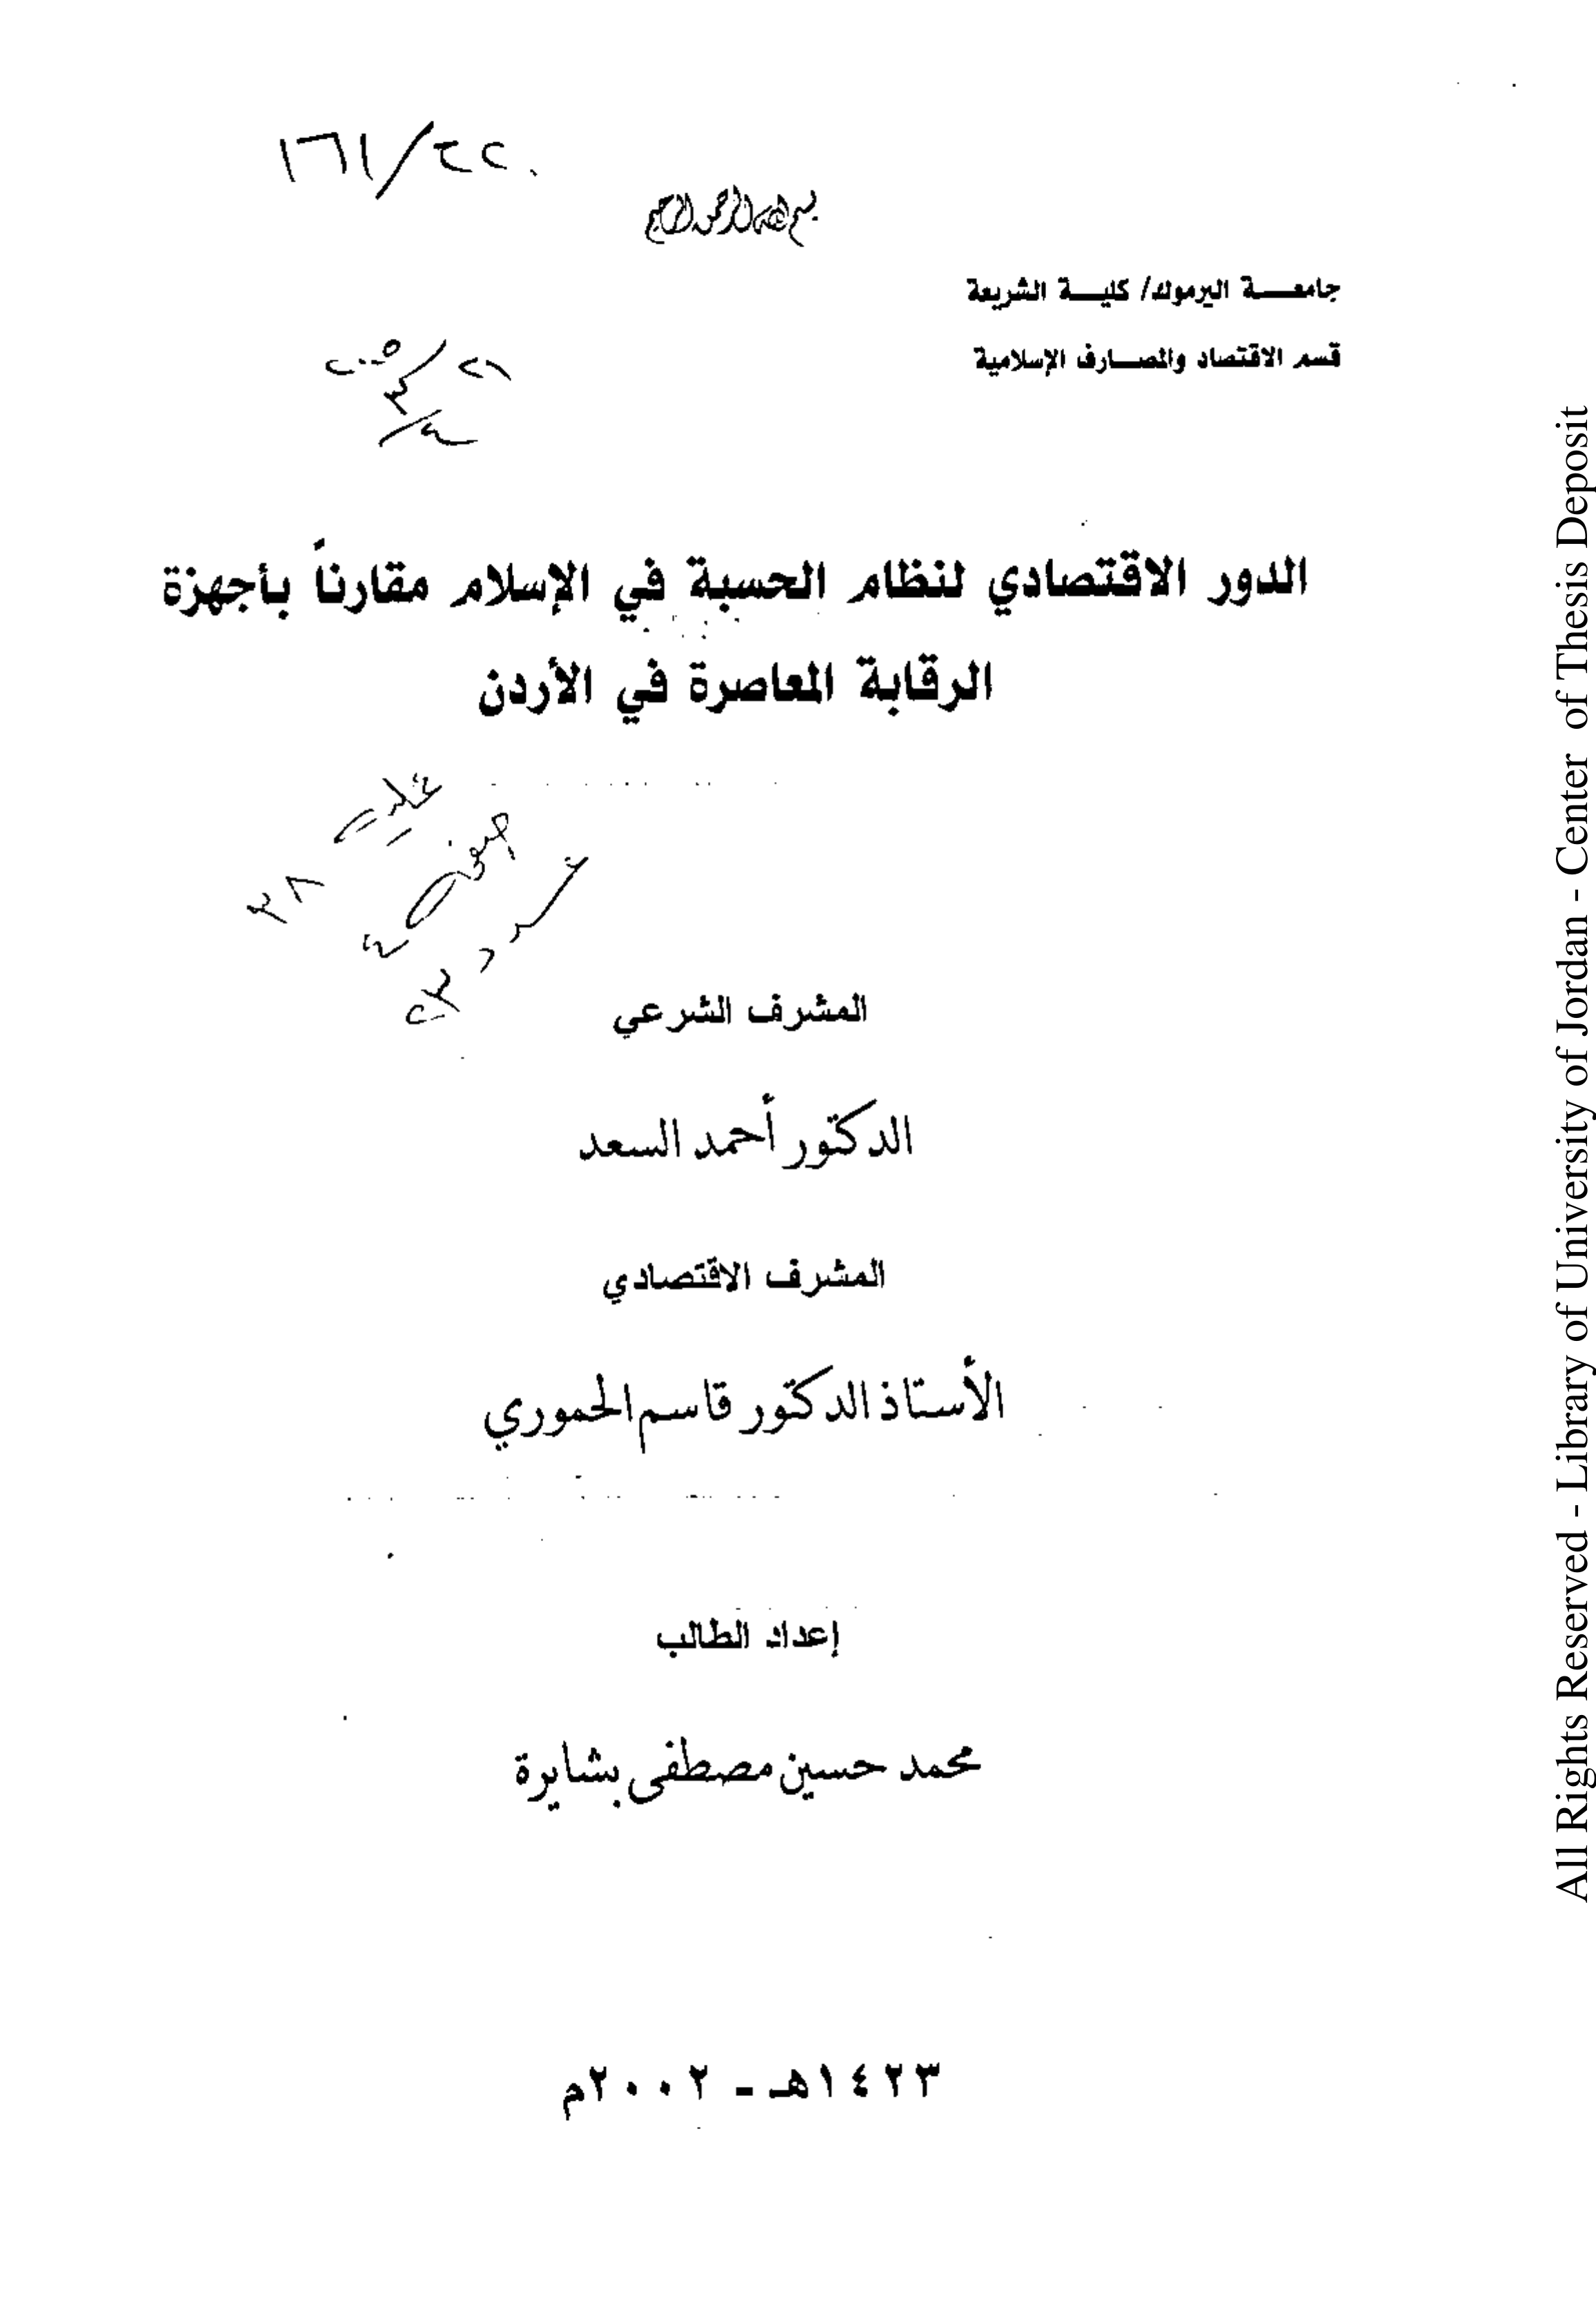 بسم الله الرحمن الرحيم
جامعة اليرموك/ كلية الشريعة
قسم الاقتصاد والمصارف الإسلامية
الدور الاقتصادي لنظام الحسبة في الإسلام مقارناً بأجهزة
الرقابة المعاصرة في الأردن
المشرف الشرعي
الدكتور أحمد السعد
المشرف الاقتصادي
الأستاذ الدكتور قاسم الحموري
إعداد الطالب
محمد حسين مصطفى بشايرة
١٤٢٣هـ - ٢٠٠٢م
All Rights Reserved - Library of University of Jordan - Center of Thesis Deposit